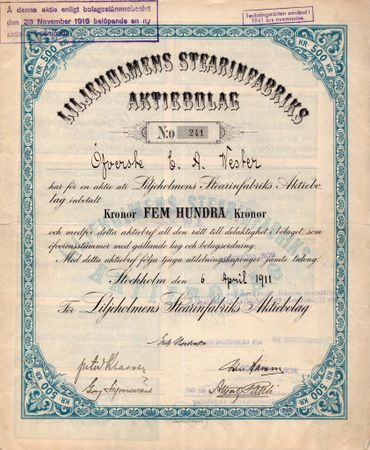 Å denna aktie enligt bolagsstämmobeslut
den 23 November 1916 belöpande en ny
Teckningsrätten använd i
1941 års nyemission.
KR 500 KR
KR 500 KR
LILJEHOLMENS STEARINFABRIKS
AKTIEBOLAG
N:o 241
Öfverste E. A. Wester
har för en aktie uti Liljeholmens Stearinfabriks Aktiebo-
lag inbetalt
Kronor FEM HUNDRA Kronor
och medför detta aktiebref all den rätt till delaktighet i bolaget, som
öfverensstämmer med gällande lag och bolagsordning.
Med detta aktiebref följa tjugu utdelningskuponger jämte talong.
Stockholm den 6 April 1911
För Liljeholmens Stearinfabriks Aktiebolag
KR 500 KR
KR 500 KR